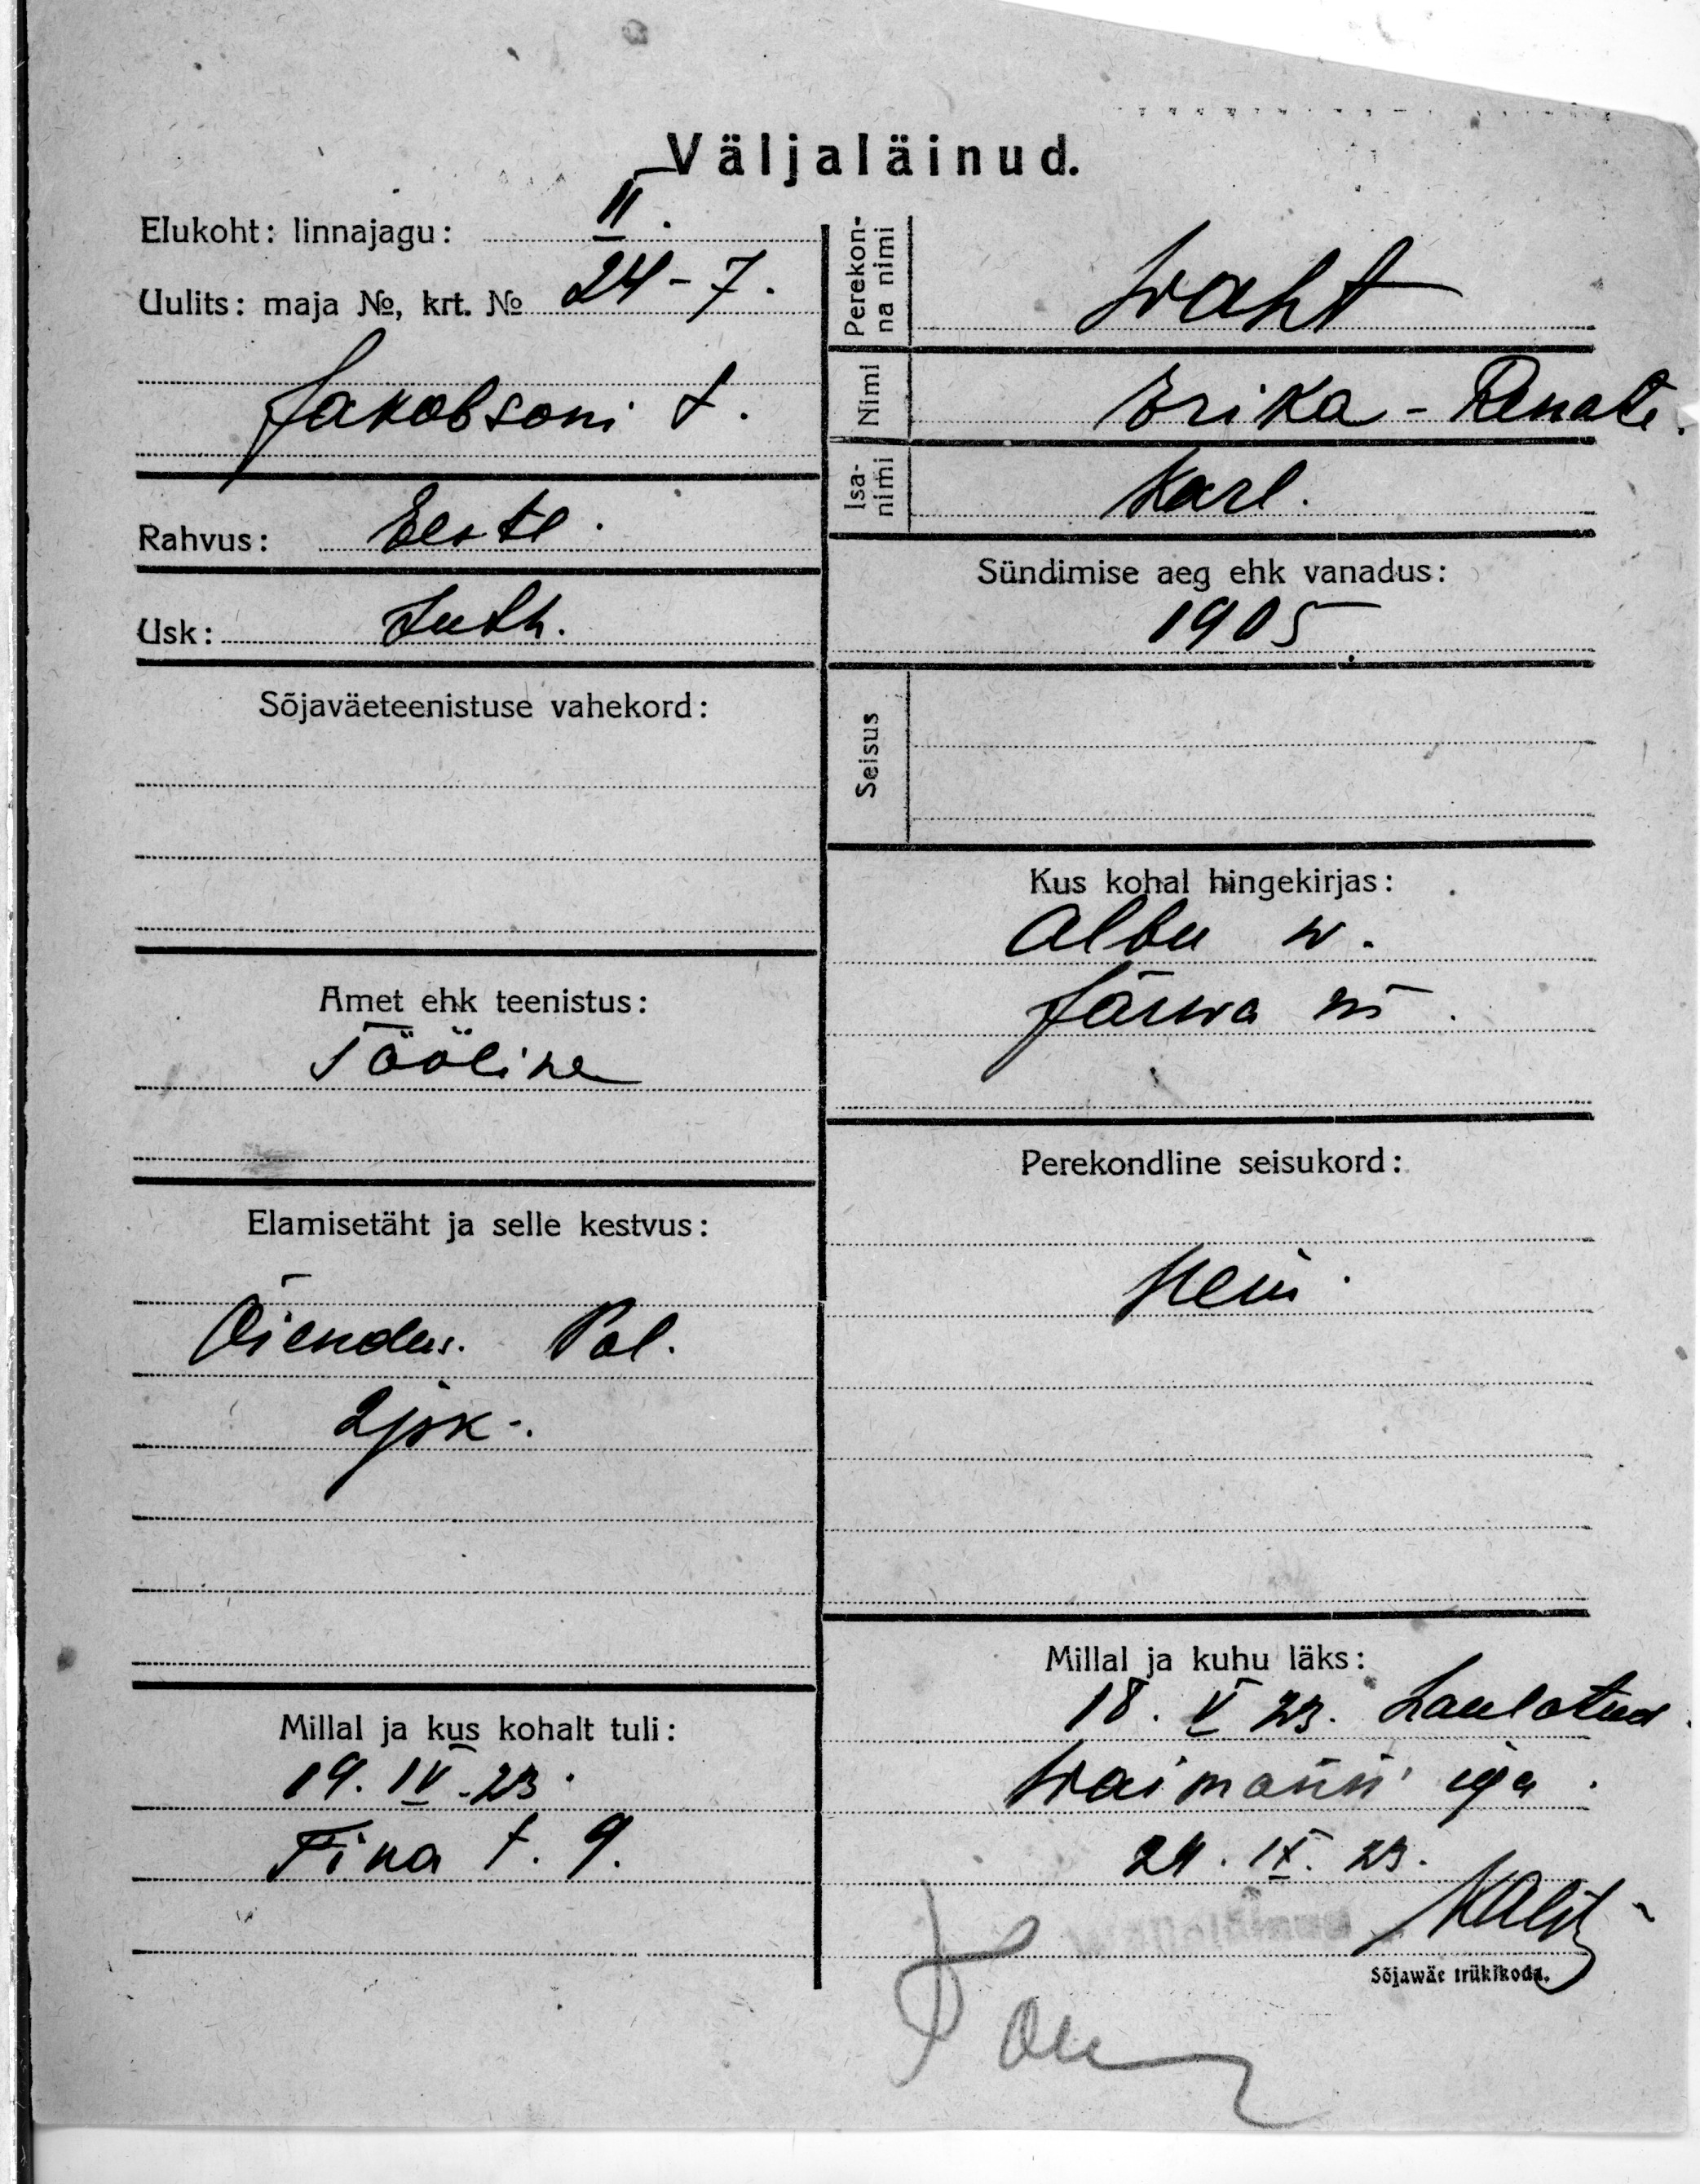 Väljaläinud.
Elukoht: linnajagu: II.
Uulits: maja №, krt. № 24-7.
Jakobsoni t.
Rahvus: Eestl.
Usk: Luth.
Sõjaväeteenistuse vahekord:
Amet ehk teenistus:
Tööline
Elamisetäht ja selle kestvus:
Õiendus. Pol.
2 jsk.
Millal ja kus kohalt tuli:
19. IV. 23.
t. 9.
Perekon-
na nimi
Waht
Nimi
Erika - Renate.
Isa-
nimi
Karl.
Sündimise aeg ehk vanadus:
1905.
Seisus
Kus kohal hingekirjas:
Albu w.
Järwa m.
Perekondline seisukord:
Millal ja kuhu läks:
18. V 23. Laulatud.
24. IX. 23.
Wäljaläinud
Sõjawäe trükikoda.